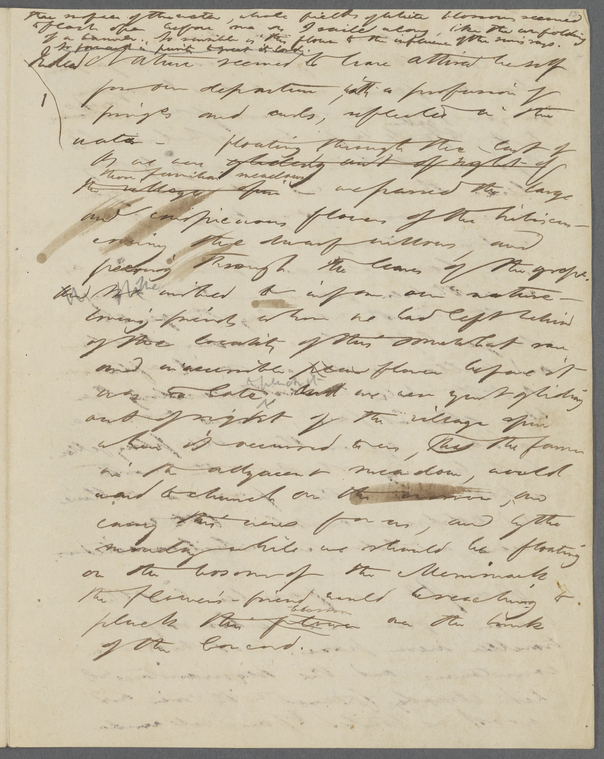 the surface of the water, whole fields of white blossoms seemed
to flash open before me as I sailed along, like the unfolding
of a banner. So sensible is this flower to the influence of the sun's rays.
Indeed Nature seemed to have attired herself
1
for our departure, with a profusion of
fringes and curls, reflected in the
water — floating through the last of
As we were gliding out of sight of
these familiar meadows
the village spire — we passed the large
and conspicuous flowers of the hibiscus —
covering the dwarf willows, and
through the leaves of the grape.
and wished to inform our nature-
loving friends, whom we had left behind
of the locality of this somewhat rare
and inaccessible flower before it
was too late, but we were just gliding
out of sight of the village spire
when it occurred to us, that the farmer
in the adjacent meadow, would
to church on the morrow, and
carry this news for us, and by the
monday while we should be floating
on the bosom of the Merrimack
the flower's friend would be reaching to
blossom
pluck this flower on the bank
of the Concord.